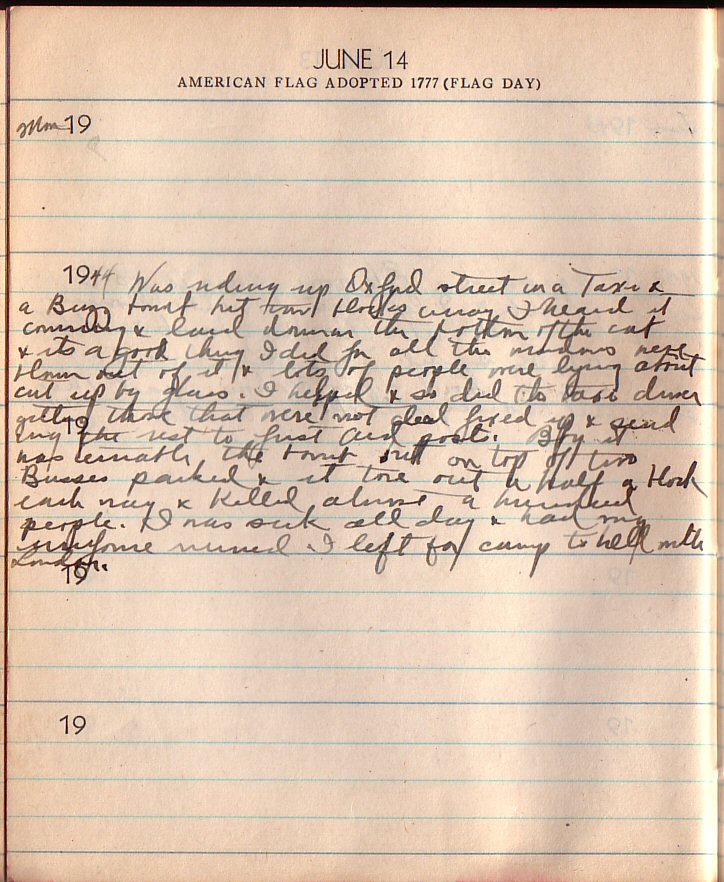 JUNE 14
AMERICAN FLAG ADOPTED 1777 (FLAG DAY)
19
1944 Was riding up Oxford street in a Taxi &
a Buzz bomb hit two blocks away I heard it
comming & laid down in the bottom of the cab
& its a good thing I did for all the windows were
blown out of it & lots of people were lying about
cut up by glass. I helped & so did the taxi driver
getting those that were not dead fixed up & send
19
ing the rest to first aid post. Boy it
was terrable the bomb hit on top of two
Busses parked & it tore out a half a block
each way & killed almost a hundred
people. I was sick all day & had my
uniforme ruined I left for camp to hell with
London.
19
19